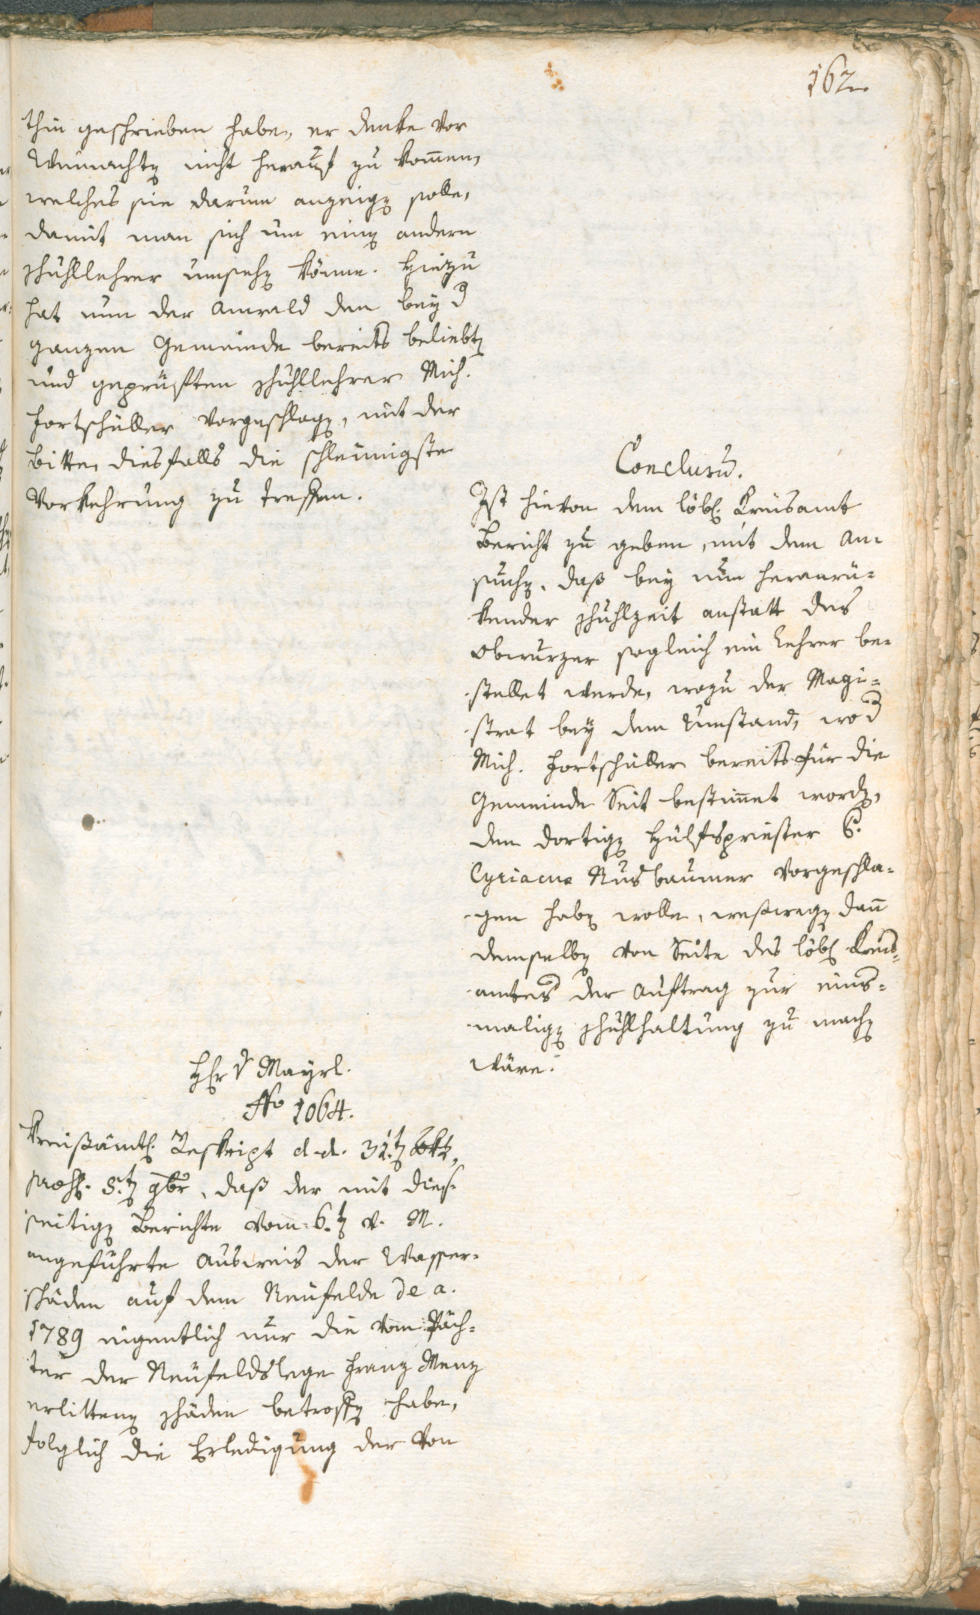 162.
thin geschrieben habe, er denke vor
Weinachten nicht herauf zu kom̅en,
welches sie darum anzeigen solle,
damit man sich um einen andern
Schullehrer umsehen könne. Hiezu
hat nun der Anwald den bey der
ganzen Gemeinde bereits beliebten
und geprüften Schullehrer Mich.
Hortschüller vorgeschlagen, mit der
Bitte, diesfalls die schleunigste
Vorkehrung zu treffen.
Conclusu̅.
Ist hievon dem löbl. Kreisamt
Bericht zu geben, mit dem An-
suchen, daß bey nun heranrü-
kender Schulzeit anstatt des
Obwurzer sogleich ein Lehrer be-
stellet werde, wozu der Magi-
strat bey dem Umstand, wo der
Mich. Hortschüller bereits für die
Gemeinde Seit bestim̅et worden,
den dortigen Hülfspriester H.
Cyriacus Nusbaumer vorgeschla-
gen haben wolle, weßwegen dan̅
demselben von Seite des löbl. Kreis-
amtes der Auftrag zur eins-
maligen Schulhaltung zu machen
wäre.
Hr. v. Mayrl.
No 1064.
Kreisämtl. Reskript d. d. 31.ten 8br.,
praes. 5.ten 9br., daß der mit dies-
seitigen Berichte vom 6.ten v. M.
angeführte Ausweis der Wasser-
schäden auf dem Neufelde de a.
1789 eigentlich nur die vom Päch-
ter der Neufeldslege Franz Menz
erlittenen Schäden betroffen habe,
folglich die Erledigung der von